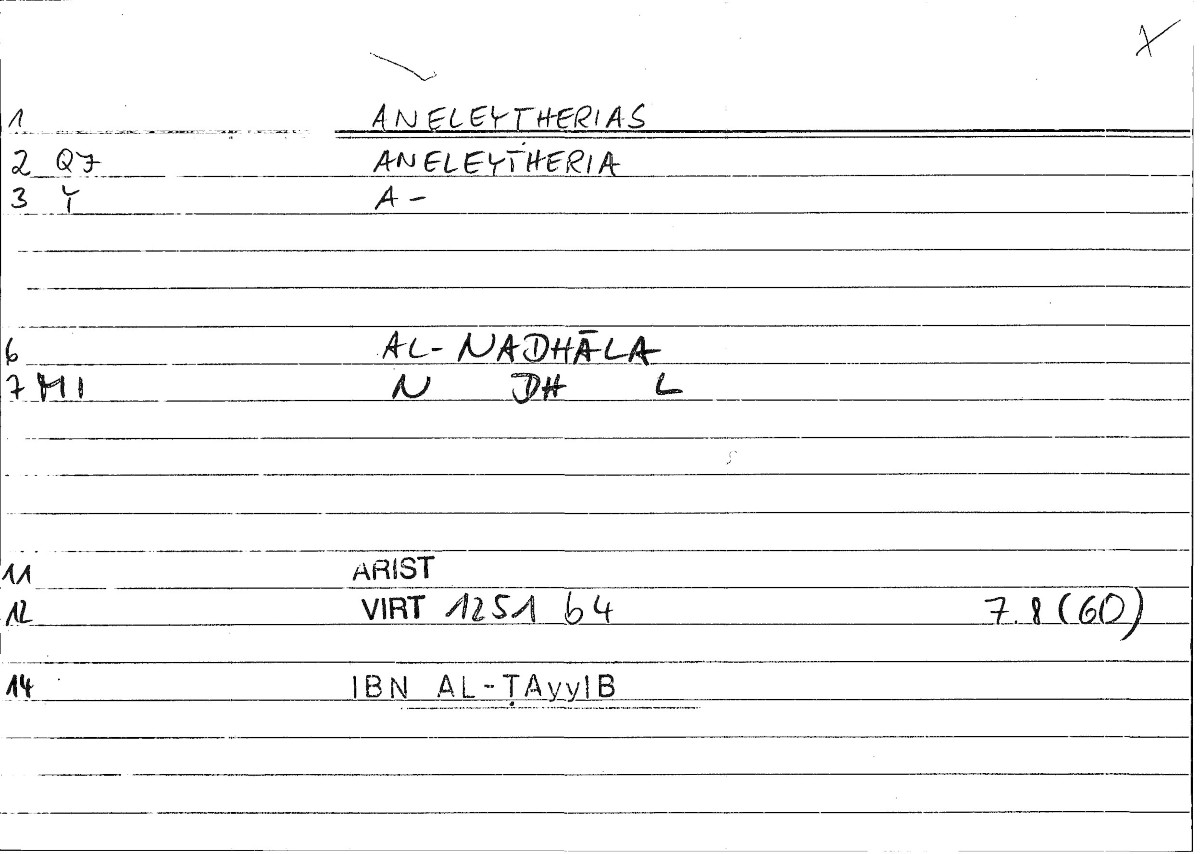 1 ANELEYTHERIAS
2 Q7 ANELEYTHERIA
3 Y A-
6 AL-NADHĀLA
7 MI N DH L
11 ARIST
12 VIRT 1251 b4 7.8 (60)
14 IBN AL-ṬAyyIB